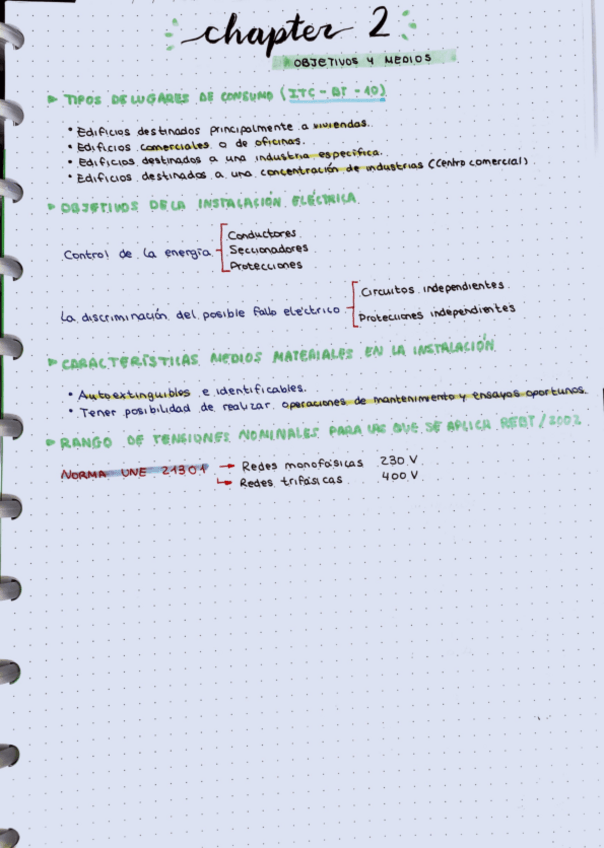 chapter 2
OBJETIVOS Y MEDIOS
▶ TIPOS DE LUGARES DE CONSUMO (ITC - BT - 10)
• Edificios destinados principalmente a viviendas.
• Edificios comerciales o de oficinas.
• Edificios destinados a una industria específica.
• Edificios destinados a una concentración de industrias (Centro comercial)
▶ OBJETIVOS DE LA INSTALACIÓN ELÉCTRICA
Control de la energía
Conductores
Seccionadores
Protecciones
La discriminación del posible fallo eléctrico
Circuitos independientes
Protecciones independientes
▶ CARACTERÍSTICAS MEDIOS MATERIALES EN LA INSTALACIÓN
• Autoextinguibles e identificables.
• Tener posibilidad de realizar operaciones de mantenimiento y ensayos oportunos.
▶ RANGO DE TENSIONES NOMINALES PARA LAS QUE SE APLICA REBT/2002
NORMA UNE 21301 → Redes monofásicas 230 V
↳ Redes trifásicas 400 V